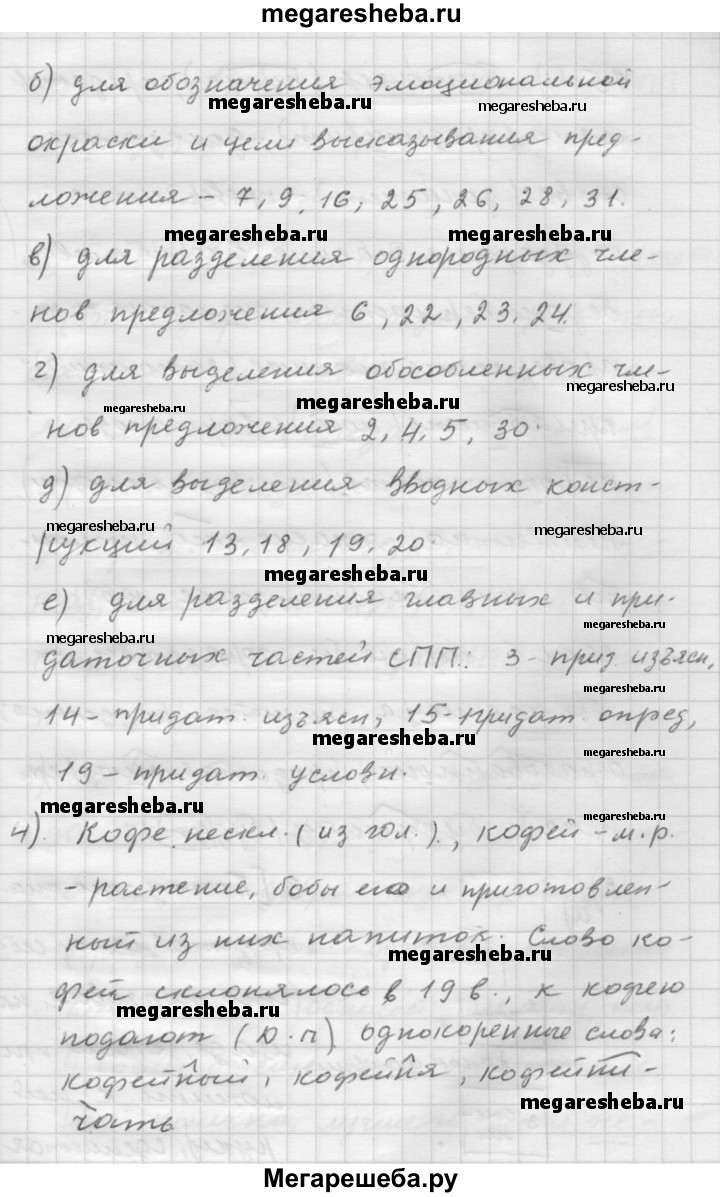 megaresheba.ru
б) для обозначения эмоциональной
megaresheba.ru megaresheba.ru
окраски и цели высказывания пред-
ложения - 7, 9, 16, 25, 26, 28, 31.
megaresheba.ru megaresheba.ru
в) для разделения однородных чле-
нов предложения 6, 22, 23. 24.
г) для выделения обособленных чле-
megaresheba.ru megaresheba.ru megaresheba.ru
нов предложения 2, 4. 5, 30.
д) для выделения вводных конст-
megaresheba.ru megaresheba.ru
рукций 13, 18, 19. 20
megaresheba.ru
е) для разделения главных и при-
megaresheba.ru
даточных частей СПП: 3 - прид. изъясн,
megaresheba.ru
14 - придат. изъясн, 15 - придат. опред,
megaresheba.ru
19 - придат. условн.
megaresheba.ru megaresheba.ru
4). Кофе, нескл. (из гол.)., кофей - м.р.
- растение, бобы его и приготовлен-
ный из них напиток. Слово ко-
megaresheba.ru
фей склонялось в 19 в., к кофею
megaresheba.ru
подают (Ю.п) однокоренные слова:
кофейный, кофейня, кофейни-
megaresheba.ru
чать
Мегарешеба.ру